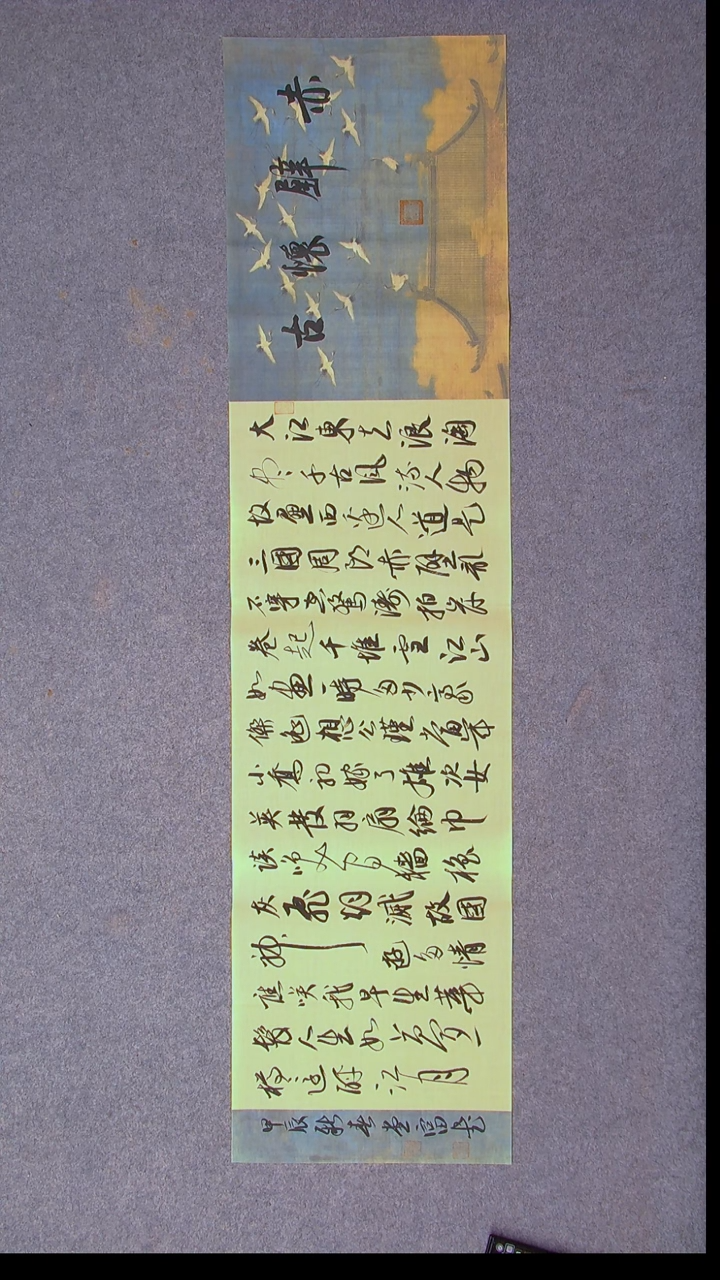 赤壁懷古
大江東去浪淘
尽千古風流人物
故壘西邊人道是
三國周郎赤壁亂
石穿空驚濤拍岸
卷起千堆雪江山
如畫一時多少豪
傑遙想公瑾當年
小喬初嫁了雄姿
英發羽扇綸巾
談笑間檣櫓
灰飛烟滅故國
神遊多情
應笑我早生華
髮人生如夢一
樽還酹江月
甲辰秋